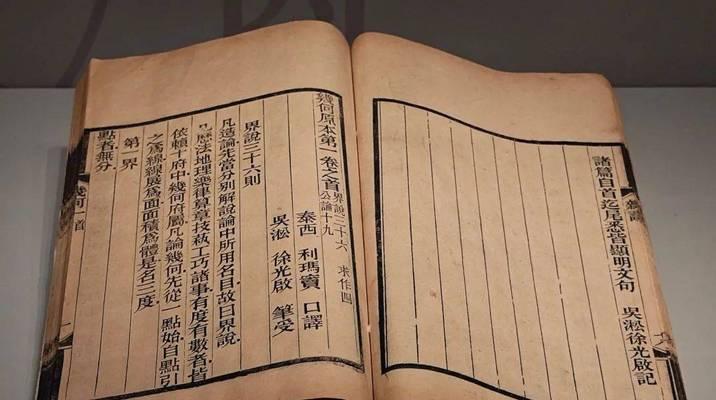 諸篇自首迄尾悉皆顯明文句
吳淞徐光啟記
幾何原本第一卷之首
界說三十六
公論十九
求作四
泰西 利瑪竇 口譯
吳淞 徐光啟 筆受
界說三十六則
凡造論先當分別解說論中所用名目故曰界說
凡歷法地理樂律算章技藝工巧諸事有度有數者皆
依賴十府中幾何府屬凡論幾何先從一點始自點引
之爲線線展爲面面積爲體是名三度
第一界
點者無分
幾何一首